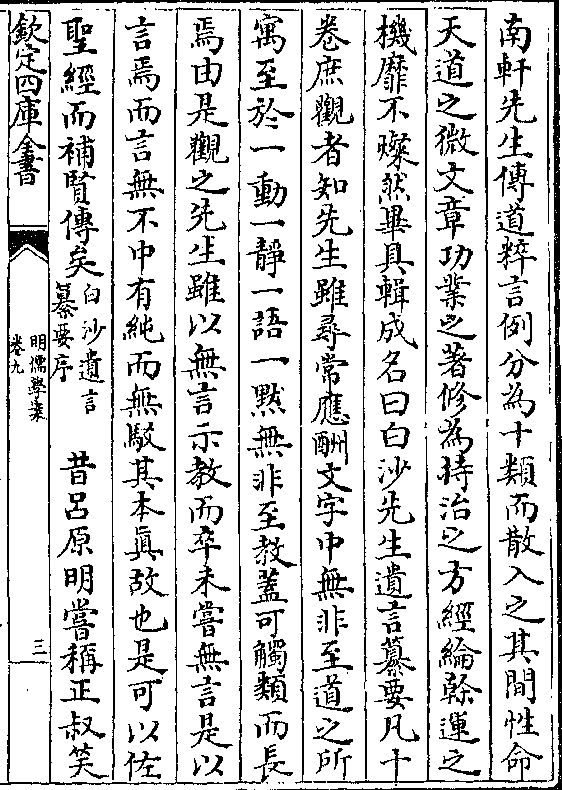 南軒先生傳道粹言例分為十類而散入之其間性命
天道之微文章功業之著修為持治之方經綸斡運之
機靡不燦然畢具輯成名曰白沙先生遺言纂要凡十
卷庶觀者知先生雖尋常應酬文字中無非至道之所
寓至於一動一靜一語一黙無非至教蓋可觸類而長
焉由是觀之先生雖以無言示教而卒未嘗無言是以
言焉而言無不中有純而無駁其本眞故也是可以佐
聖經而補賢傳矣白沙遺言纂要序　昔呂原明嘗稱正叔笑
欽定四庫全書
明儒學案
卷九
三